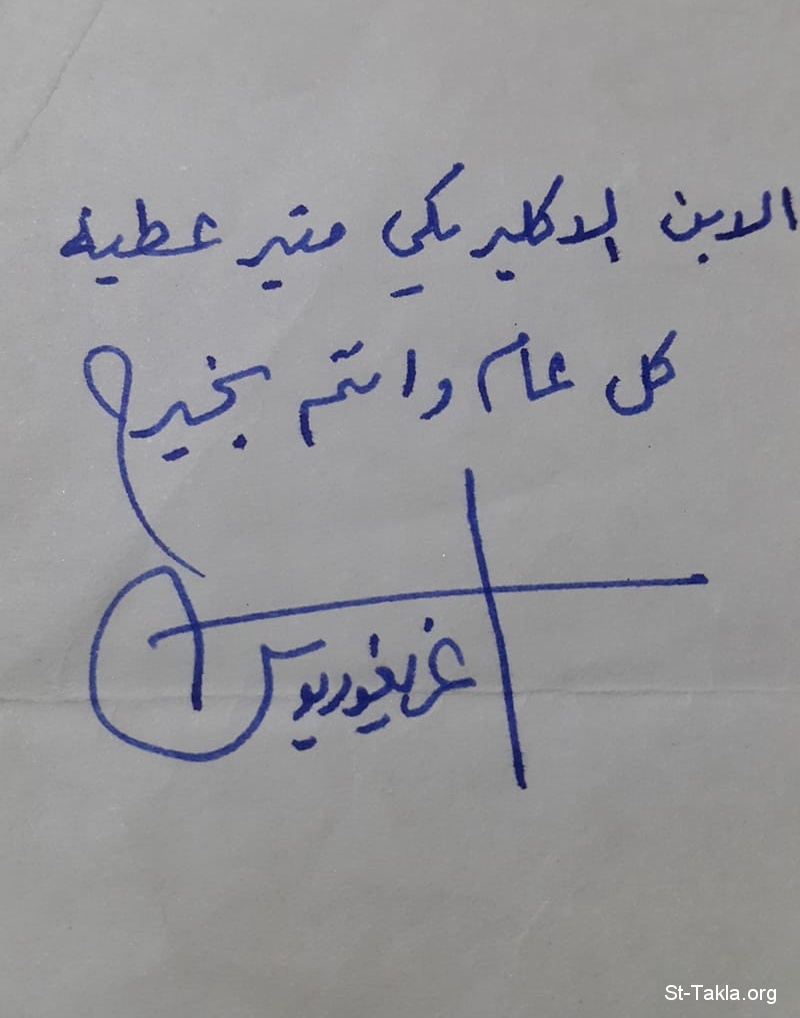 الابن الاكليريكي منير عطية
كل عام وانتم بخير
غريغوريوس
St-Takla.org